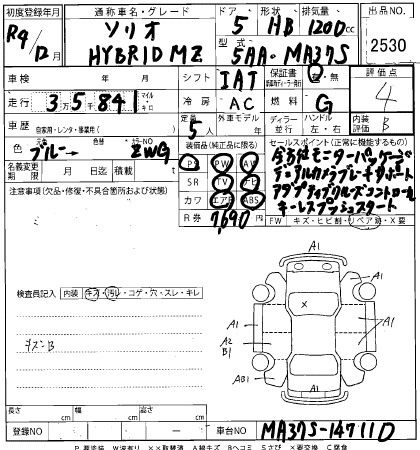 初度登録年月 通称車名・グレード ドア 形状 排気量 出品NO.
R4/12月 ソリオ HYBRID MZ 5 HB 1200 CC 2530
型式 5AA・MA37S
車検 年 月 シフト IAT 保証書 有・無 評価点 4
走行 3万5千841 マイル キロ 冷房 AC 燃料 G
車歴 自家用・レンタ・事業用( ) 定員 5人 外車モデル 年 ディーラー 並行 ハンドル 左・右 内装評価 B
色 元色 ブルー→ 色替 カラーNO ZWG 装備品(純正品に限る) セールスポイント(正常に機能するもの)
名義変更期限 月 日迄 積載 t P/S PW AW
注意事項(欠品・修復・不具合箇所および状態) SR TV ナビ
カワ エアB ABS
全方位モニターパッケージ
デュアルカメラブレーキサポート
アダプティブクルーズコントロール
キーレスプッシュスタート
R券 7,690円 FW キズ・ヒビ割・リペア跡・X要
検査員記入 内装 キズ・汚レ・コゲ・穴・スレ・キレ
キズB
A1
A1
X
A1
A2
B1
A1
AB1
A1
長さ cm 幅 cm 高さ cm
登録NO 車台NO MA37S-147110
P 要塗装 W波有り XX取替済 A線キズ Bヘコミ Sさび X要交換 C腐食